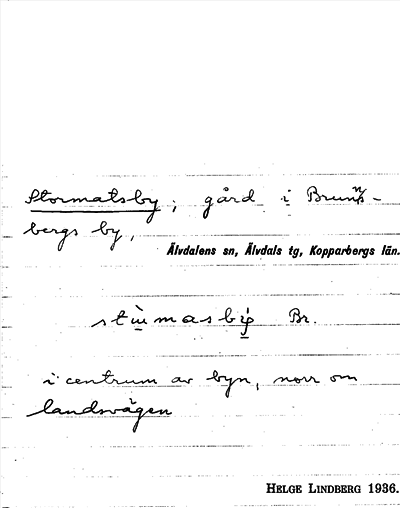 Stormatsby; gård i Bruns-
bergs by,
Älvdalens sn, Älvdals tg, Kopparbergs län.
Br.
i centrum av byn, norr om
landsvägen
HELGE LINDBERG 1936.